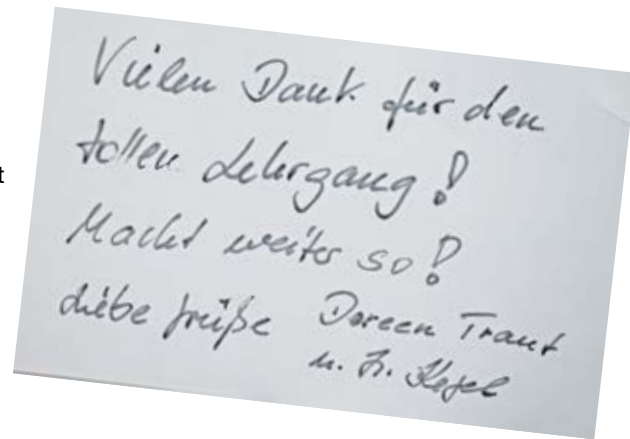 t
Vielen Dank für den
tollen Lehrgang!
Macht weiter so!
Liebe Grüße Doreen Traut
u. Fr. Kegel